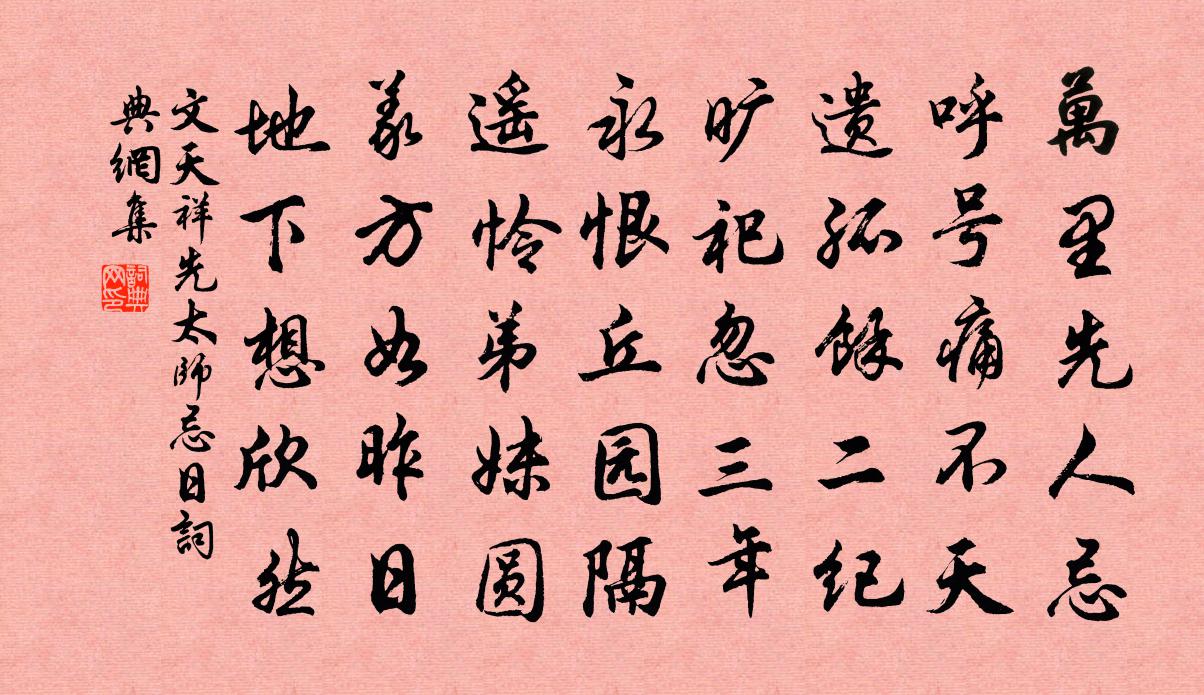 萬里先人忌
呼号痛不天
遗孤餘二纪
旷祀忽三年
永恨丘园隔
遥怜弟妹圆
義方如昨日
地下想欣然
文天祥先太師忌日詞
典網集
詞典
网印